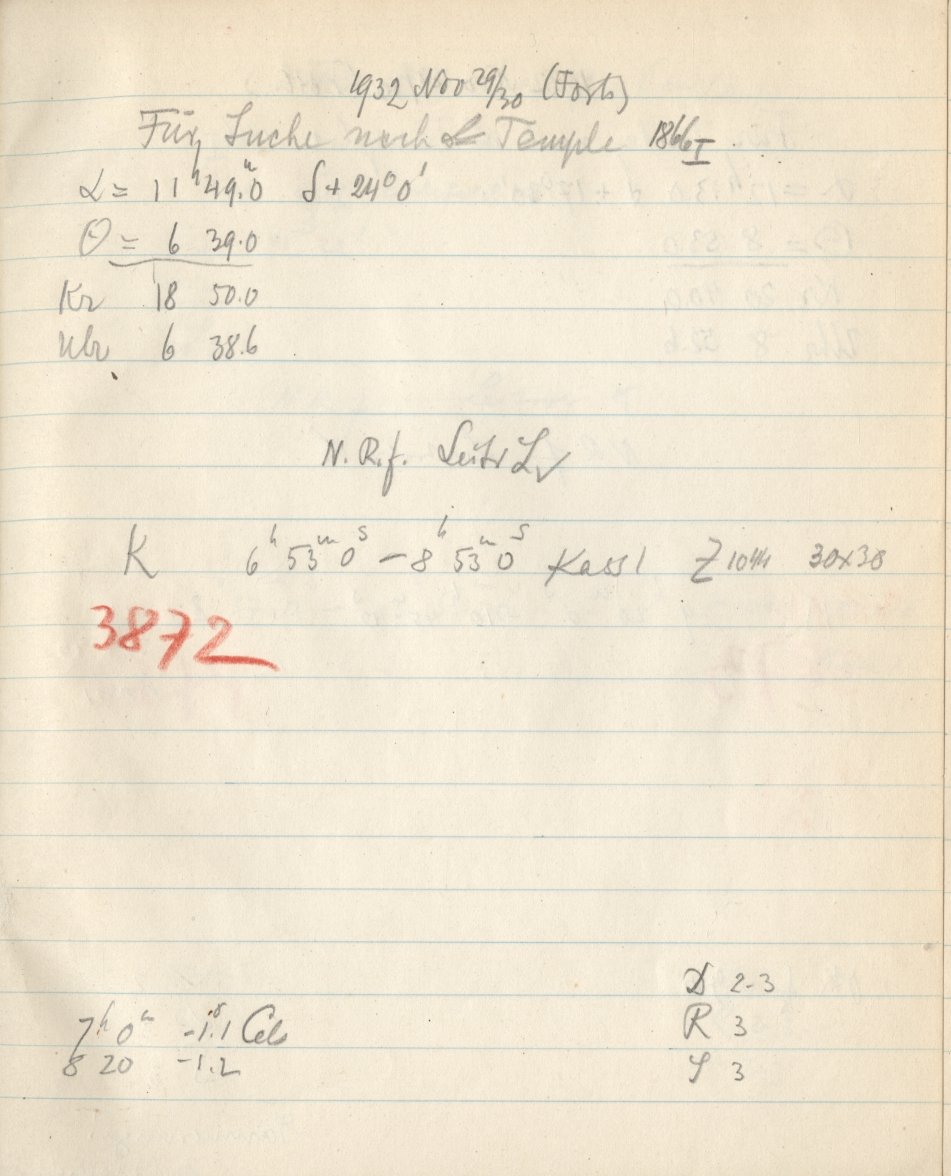 1932 Nov 29/30 (Forts)
Für Suche nach Temple 1866 I
α = 11ʰ 49.ᵐ0 δ + 24° 0'
θ = 6 39.0
Kr 18 50.0
Uhr 6 38.6
N.R.f.
K 6ʰ 53ᵐ 0ˢ – 8ʰ 53ᵐ 0ˢ Kass 1 Z 1044 30x30
3872
D 2-3
7ʰ 0ᵐ -1.°1 Cels R 3
8 20 -1.2 3